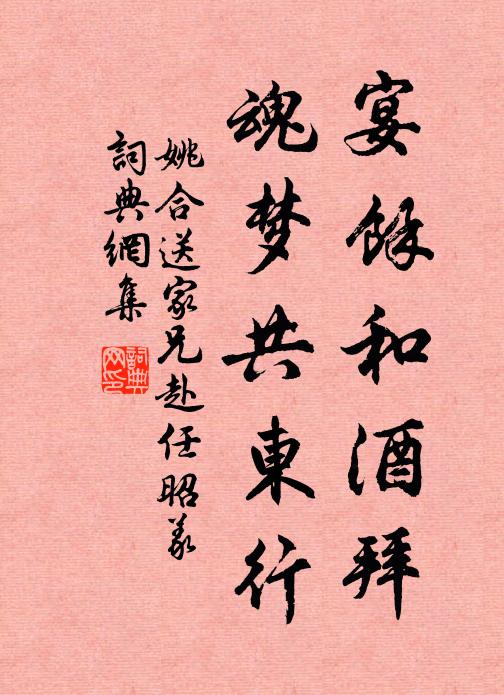 宴餘和酒拜
魂梦共東行
姚合送家兄赴任昭义
詞典網集
詞典網印